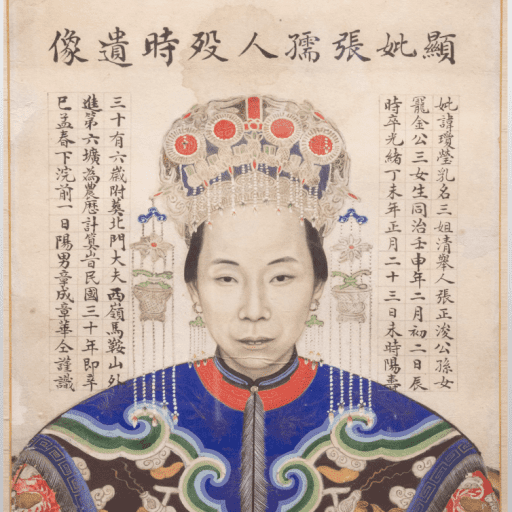 顯妣張孺人歿時遺像
妣諱瓊瑩乳名三姐清舉人張正浚公孫女
寵金公三女生同治壬申年二月初二日辰
時卒光緒丁未年正月二十三日未時陽壽
三十有六歲附葬北門大夫西嶺馬鞍山外
進第六壙為農歷計算旹民國三十年即辛
巳孟春下浣前一日陽男章成章華仝謹識